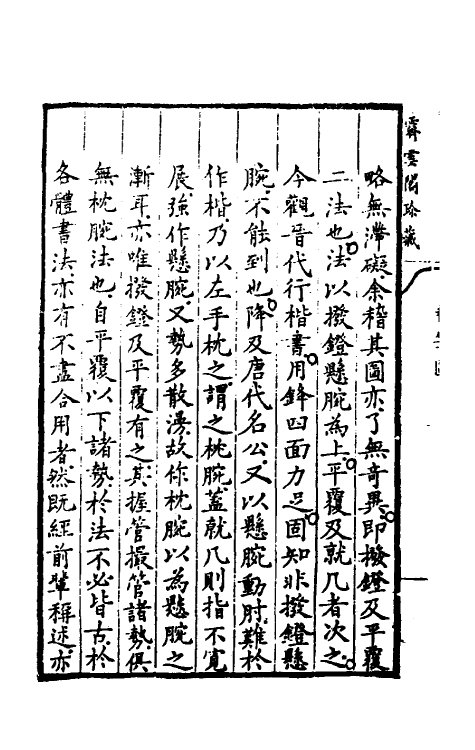 略無滯礙余稽其圖亦了無奇異即撥鐙及平覆
二法也法以撥鐙懸腕為上平覆及就几者次之
今觀晋代行楷書用鋒四面力足固知非撥鐙懸
腕不能到也降及唐代名公又以懸腕動肘難於
作楷乃以左手枕之謂之枕腕蓋就几則指不寬
展強作懸腕又勢多散漫故作枕腕以為懸腕之
漸耳亦唯撥鐙及平覆有之其握管撮管諸勢俱
無枕腕法也自平覆以下諸勢於法不必皆古於
各體書法亦有不盡合用者然既經前輩稱述亦
霽雲閣珍藏